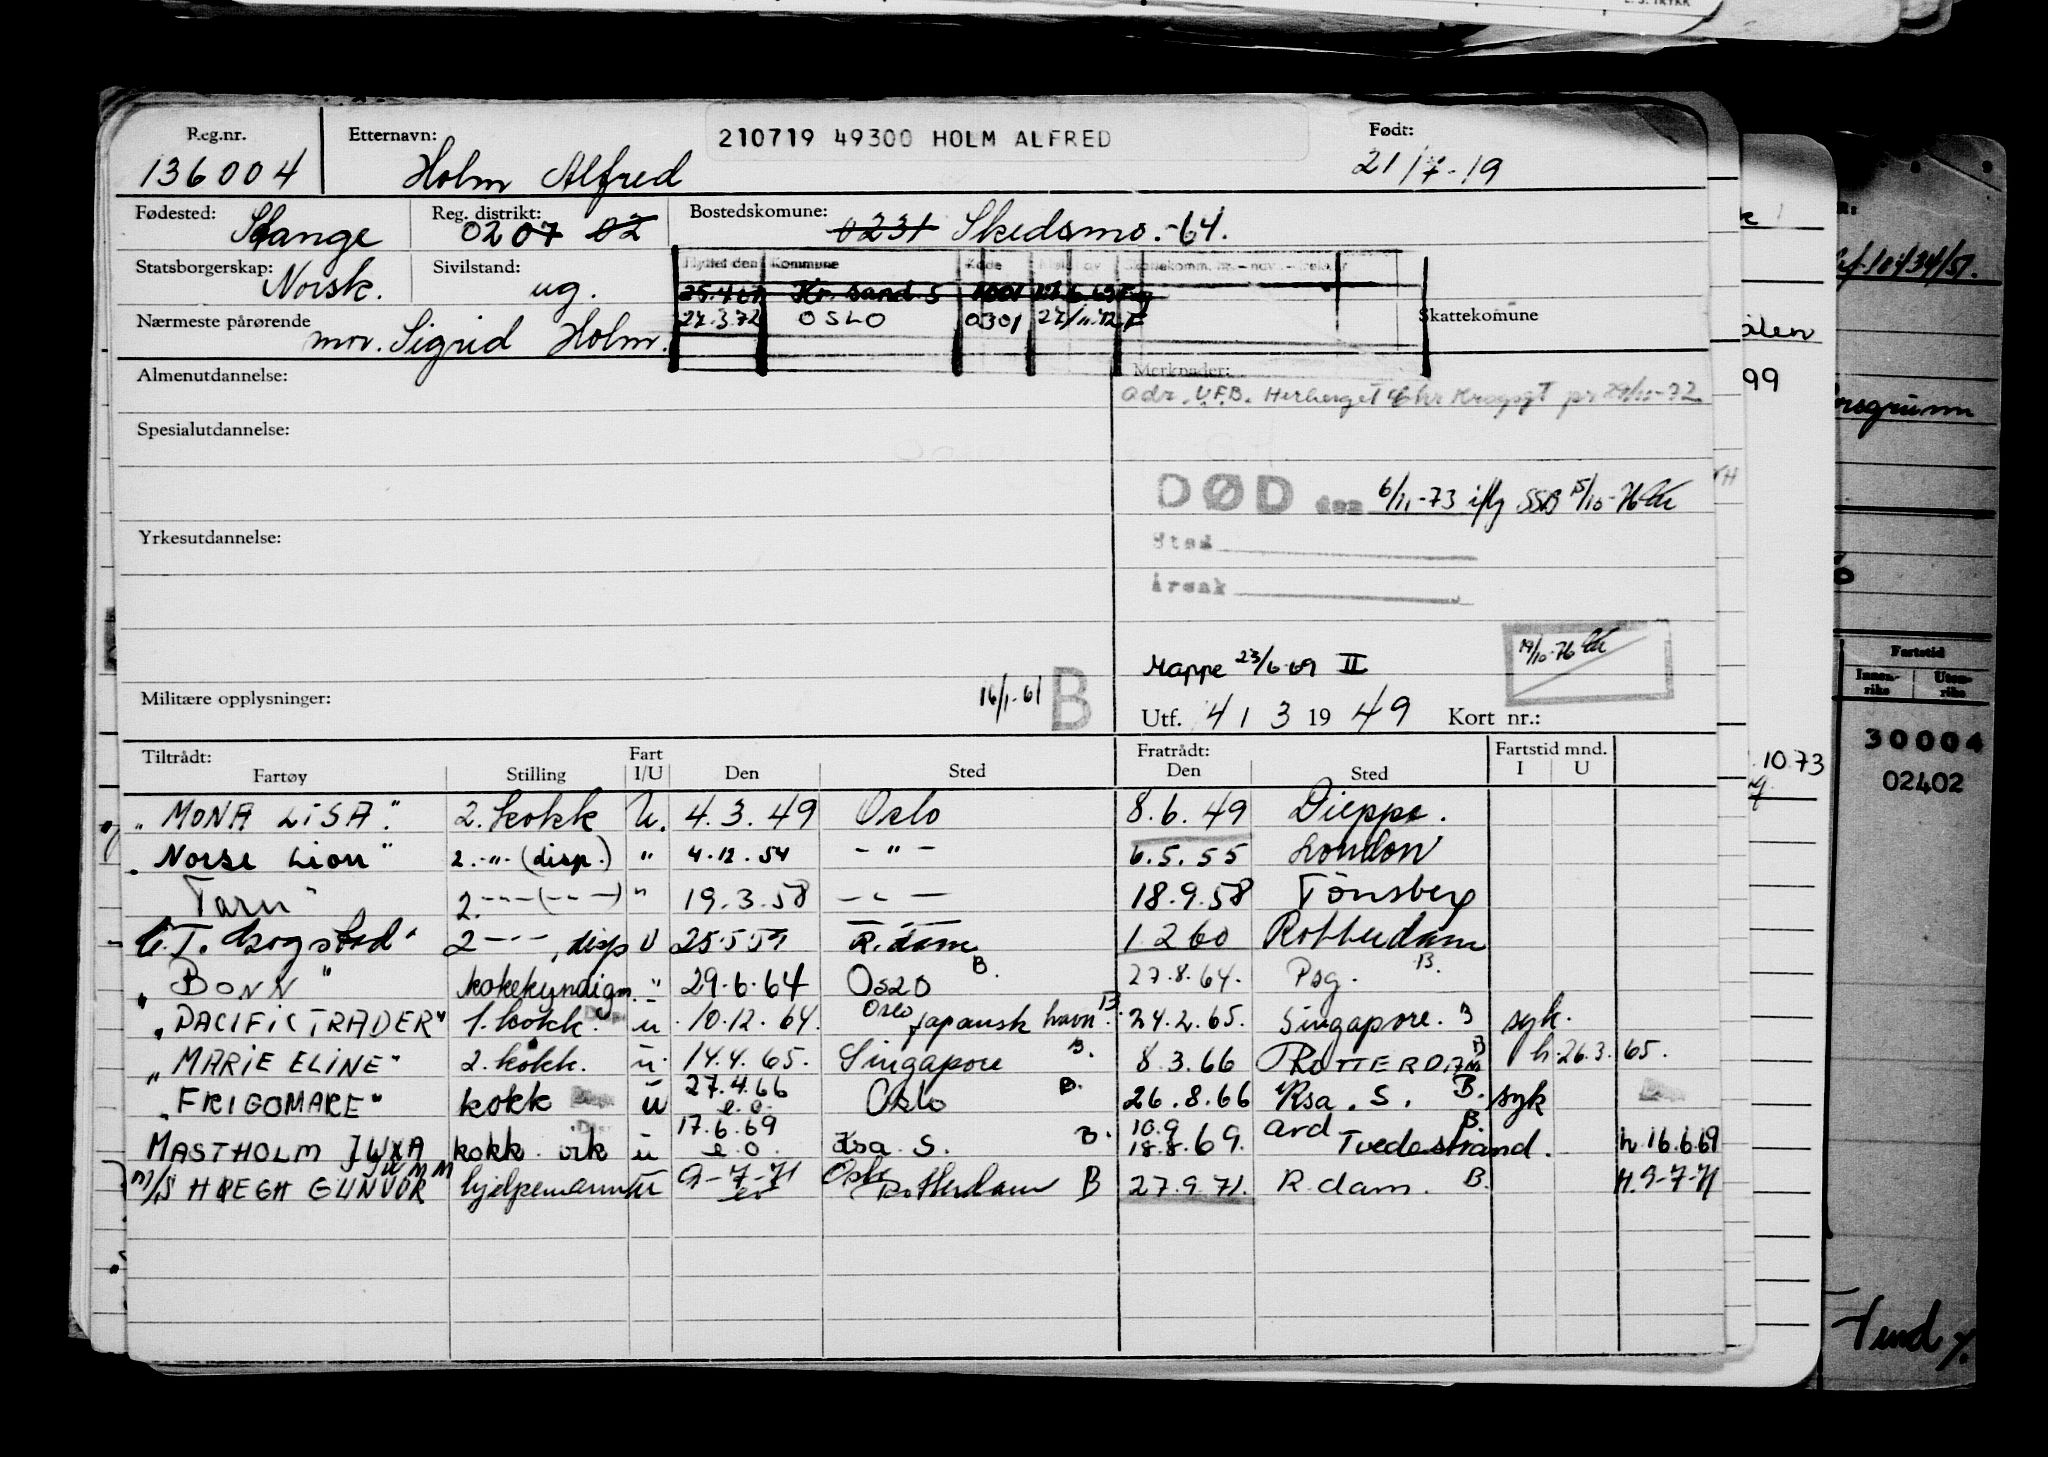 Reg.nr. Etternavn: 210719 49300 HOLM ALFRED Født:
136004 Holm Alfred 21/7-19
Fødested: Reg. distrikt: Bostedskomune:
Stange 0207 02 0231 Skedsmo.-64.
Statsborgerskap: Sivilstand: Flyttet den Kommune Kode
Norsk. ug. Kr. sand. S 1001
Nærmeste pårørende 27.3.72 OSLO 0301 Skattekomune
mor. Sigrid Holm.
Almenutdannelse: Merknader:
adr. U.F.B. Herberget Chr Krogsgt
Spesialutdannelse:
DØD den 6/11-73 iflg SSB 15/10-76
Yrkesutdannelse: Sted
Årsak
19/10-76
Mappe 23/6-69 II
Militære opplysninger: 16/1-61 B Utf. 4 / 3 19 49 Kort nr.:
Tiltrådt: Fart Fratrådt: Fartstid mnd.
Fartøy Stilling I/U Den Sted Den Sted I U
"MONA LISA". 2. kokk U. 4.3.49 Oslo 8.6.49 Dieppe.
"Norse Lion" 2.-"-(disp.) " 4.12.54 -"- 6.5.55 London
Tarn" 2.---(---) " 19.3.58 --- 18.9.58 Tönsberg
C.T. Gogstad" 2 ---, disp U 25.5.59 R.dam 1 2 60 Rotterdam
"BONN" kokekyndigm. " 29.6.64 Oslo B. 27.8.64. Psg. B.
"PACIFIC TRADER" 1. kokk. u 10.12.64. Oslo Japansk havn B. 24.2.65. Singapore. B syk.
"MARIE ELINE" 2. kokk. u 14.4.65. Singapore B. 8.3.66 ROTTERDAM B h. 26.3.65.
"FRIGOMARE" kokk u 27.4.66 e.o. Oslo B. 26.8.66 Krsa. S. B. syk
MASTHOLM JUMM kokk. u 17.6.69 e.o. Ksa S. B. 10.9 18.8.69. ard Tvedestrand. B. h. 16.6.69
M/S HØEGH GUNVOR hjelpemann u 9-7-71 eo Oslo Rotterdam B 27.9.71. R.dam. B. H. 9-7-71
99
10.73
Fartstid
Innen-riks Uten-riks
30004
02402